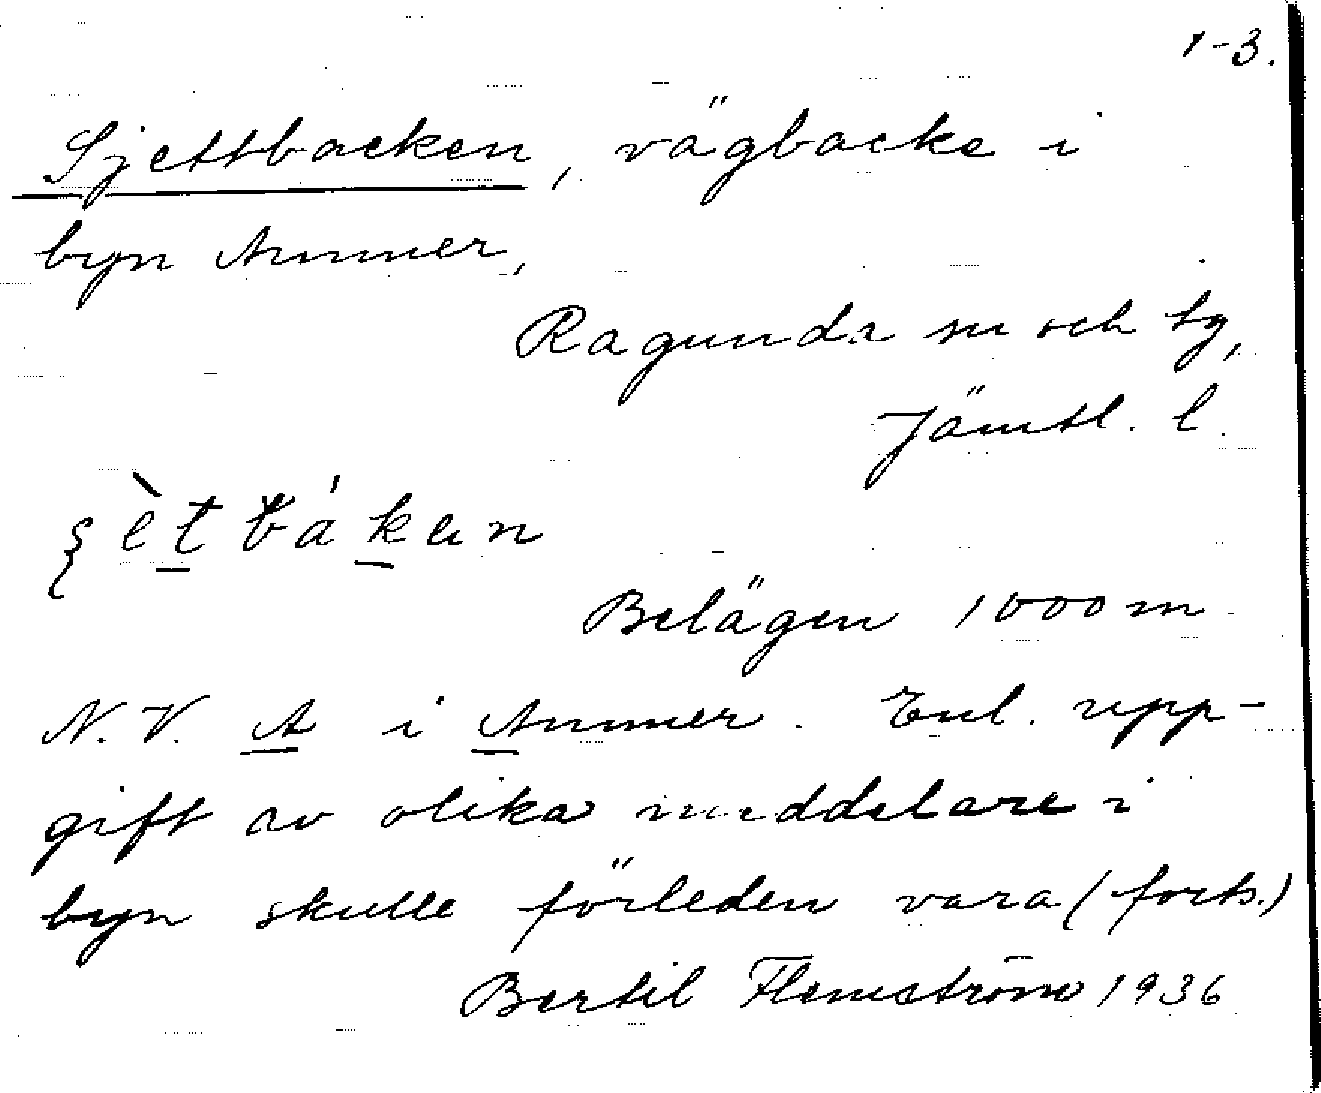 1-3.
Sjettbacken, vägbacke i
byn Ammer,
Ragunda sn och tg,
Jämtl. l.
Belägen 1000 m
N.V. A i Ammer. Enl. upp-
gift av olika meddelare i
byn skulle förleden vara (forts.)
Bertil Flemström 1936